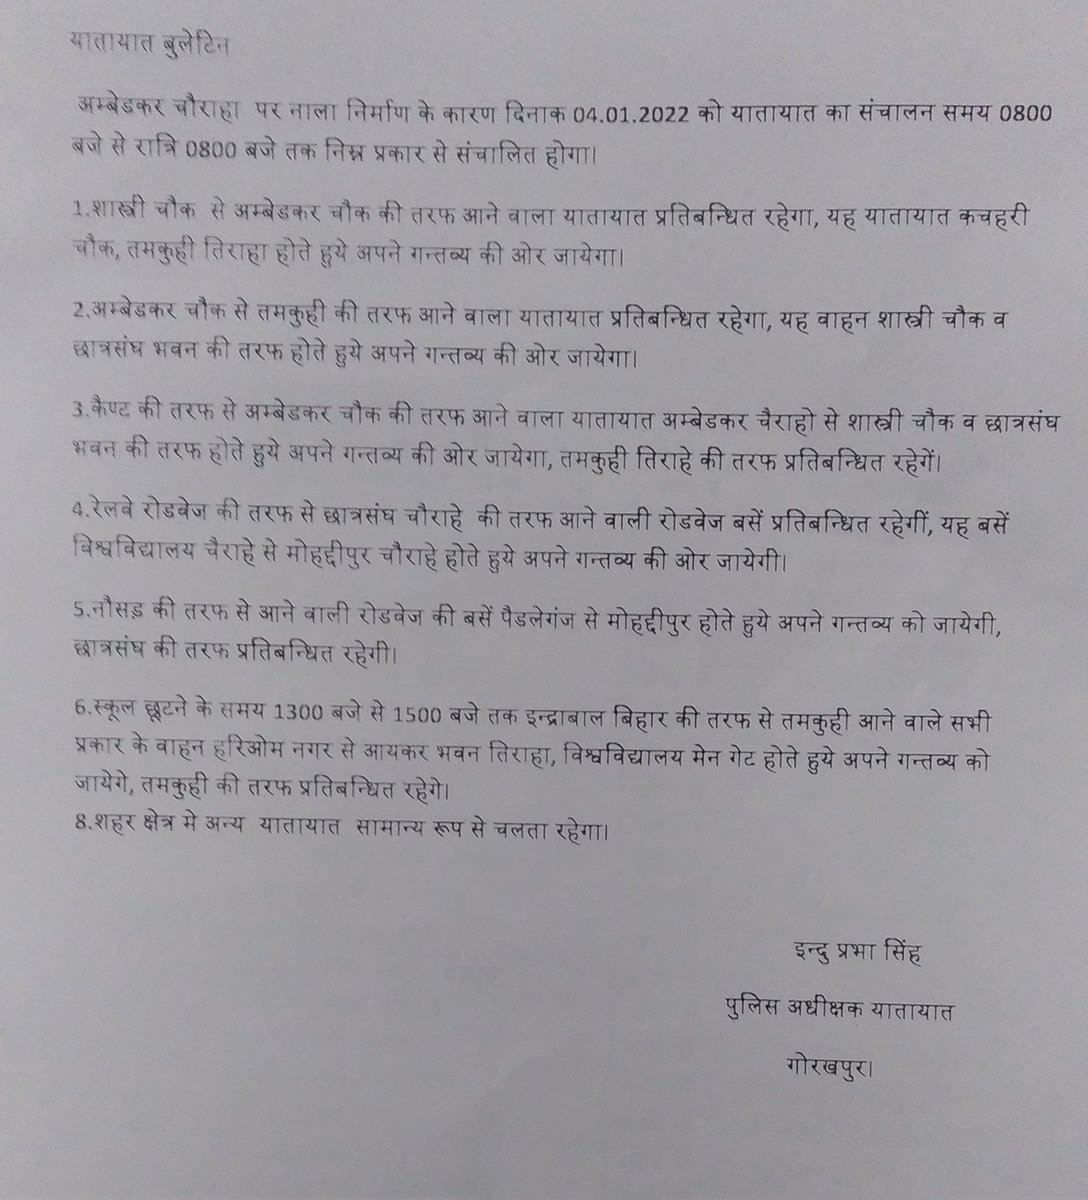 यातायात बुलेटिन
अम्बेडकर चौराहा पर नाला निर्माण के कारण दिनाक 04.01.2022 को यातायात का संचालन समय 0800
बजे से रात्रि 0800 बजे तक निम्न प्रकार से संचालित होगा।
1.शास्त्री चौक से अम्बेडकर चौक की तरफ आने वाला यातायात प्रतिबन्धित रहेगा, यह यातायात कचहरी
चौक, तमकुही तिराहा होते हुये अपने गन्तव्य की ओर जायेगा।
2.अम्बेडकर चौक से तमकुही की तरफ आने वाला यातायात प्रतिबन्धित रहेगा, यह वाहन शास्त्री चौक व
छात्रसंघ भवन की तरफ होते हुये अपने गन्तव्य की ओर जायेगा।
3.कैण्ट की तरफ से अम्बेडकर चौक की तरफ आने वाला यातायात अम्बेडकर चैराहो से शास्त्री चौक व छात्रसंघ
भवन की तरफ होते हुये अपने गन्तव्य की ओर जायेगा, तमकुही तिराहे की तरफ प्रतिबन्धित रहेगें।
4.रेलवे रोडवेज की तरफ से छात्रसंघ चौराहे की तरफ आने वाली रोडवेज बसें प्रतिबन्धित रहेगीं, यह बसें
विश्वविद्यालय चैराहे से मोहद्दीपुर चौराहे होते हुये अपने गन्तव्य की ओर जायेगी।
5.नौसड़ की तरफ से आने वाली रोडवेज की बसें पैडलेगंज से मोहद्दीपुर होते हुये अपने गन्तव्य को जायेगी,
छात्रसंघ की तरफ प्रतिबन्धित रहेगी।
6.स्कूल छूटने के समय 1300 बजे से 1500 बजे तक इन्द्राबाल बिहार की तरफ से तमकुही आने वाले सभी
प्रकार के वाहन हरिओम नगर से आयकर भवन तिराहा, विश्वविद्यालय मेन गेट होते हुये अपने गन्तव्य को
जायेगे, तमकुही की तरफ प्रतिबन्धित रहेगे।
8.शहर क्षेत्र मे अन्य यातायात सामान्य रूप से चलता रहेगा।
इन्दु प्रभा सिंह
पुलिस अधीक्षक यातायात
गोरखपुर।